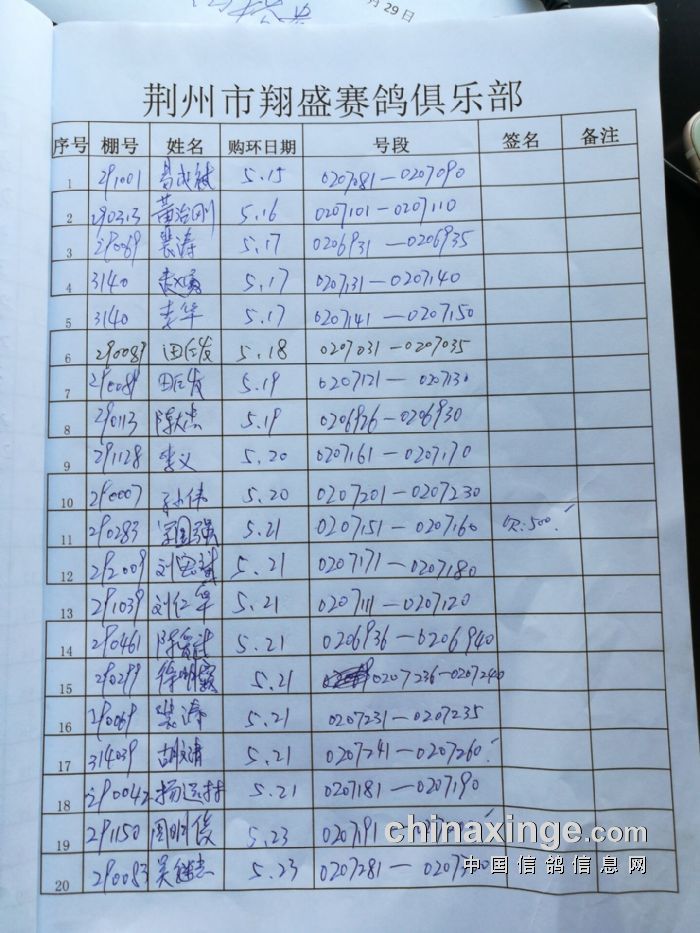 月 29 日
荆州市翔盛赛鸽俱乐部
序号 棚号 姓名 购环日期 号段 签名 备注
1 291001 5.15 0207081—0207090
2 290313 黄治刚 5.16 0207101—0207110
3 290069 裴涛 5.17 0206931—0206935
4 3140 5.17 0207131—0207140
5 3140 李华 5.17 0207141—0207150
6 290089 田仁发 5.18 0207031—0207035
7 290089 田仁发 5.19 0207121—0207130
8 290113 5.19 0206926—0206930
9 291128 李义 5.20 0207161—0207170
10 290007 孙伟 5.20 0207201—0207230
11 290283 5.21 0207151—0207160 欠:500
12 292009 5.21 0207171—0207180
13 291039 刘仁军 5.21 0207111—0207120
14 290461 5.21 0206936—0206940
15 290299 5.21 0207236—0207240
16 290069 裴涛 5.21 0207231—0207235
17 314039 5.21 0207241—0207260
18 290042 杨运林 5.21 0207181—0207190
19 291150 周明俊 5.23 0207191
20 290083 吴继志 5.23 0207281—
chinaxinge.com
中国信鸽信息网